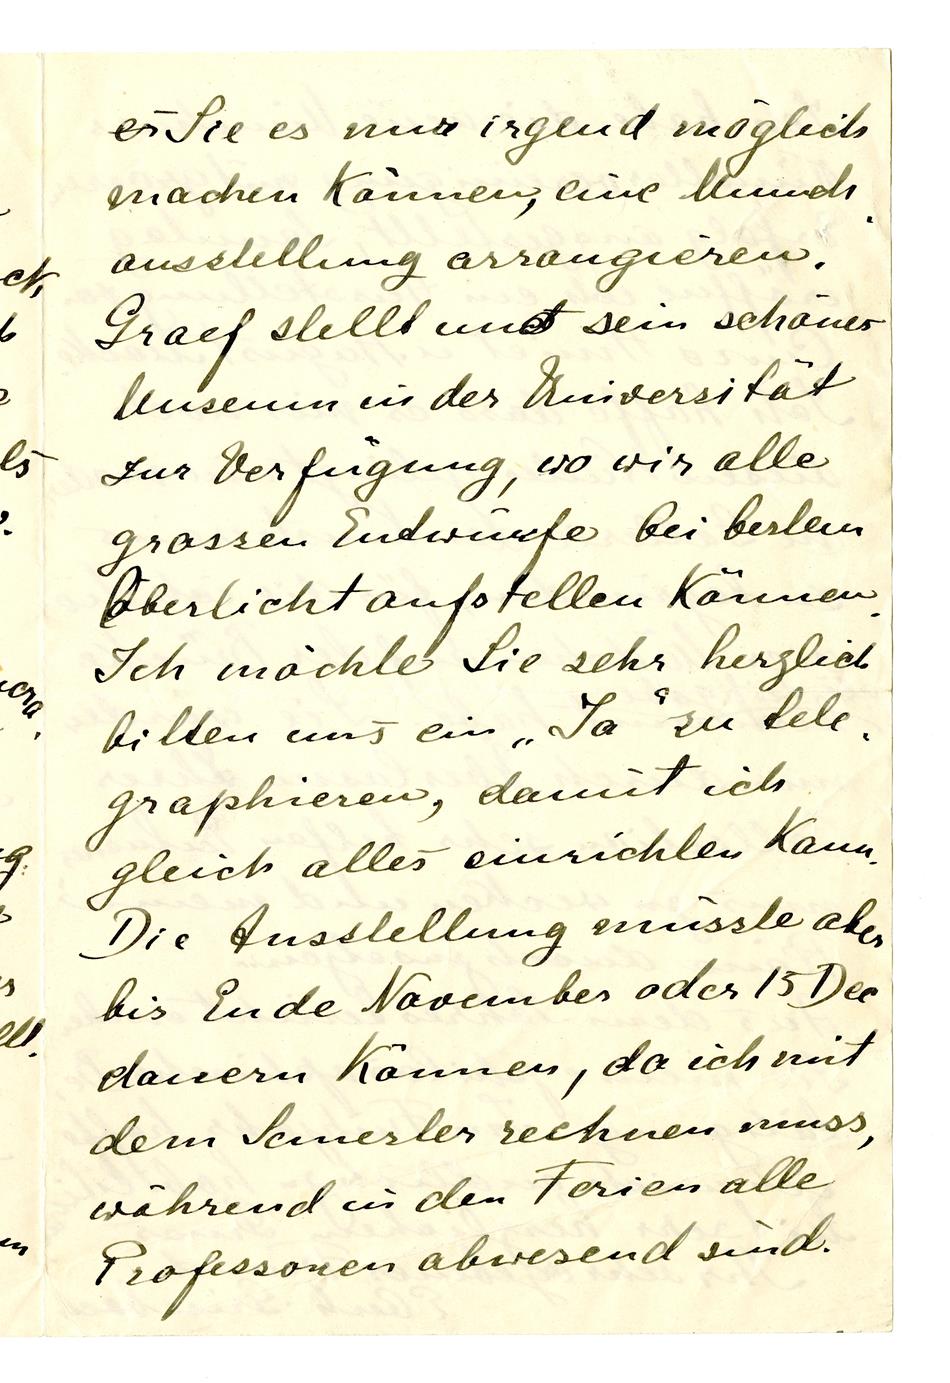 er Sie es nur irgend möglich
machen können, eine Munch
ausstellung arrangieren.
Graef stellt und sein schönes
Museum in der Universität
zur Verfügung, wo wir alle
grossen Entwürfe bei bestem
Oberlicht aufstellen können.
Ich möchte Sie sehr herzlich
bitten uns ein „Ja“ zu tele
graphieren, damit ich
gleich alles einrichten kann.
Die Ausstellung müsste aber
bis Ende November oder 15 Dec
dauern können, da ich mit
dem Semester rechnen muss,
während in den Ferien alle
Professoren abwesend sind.